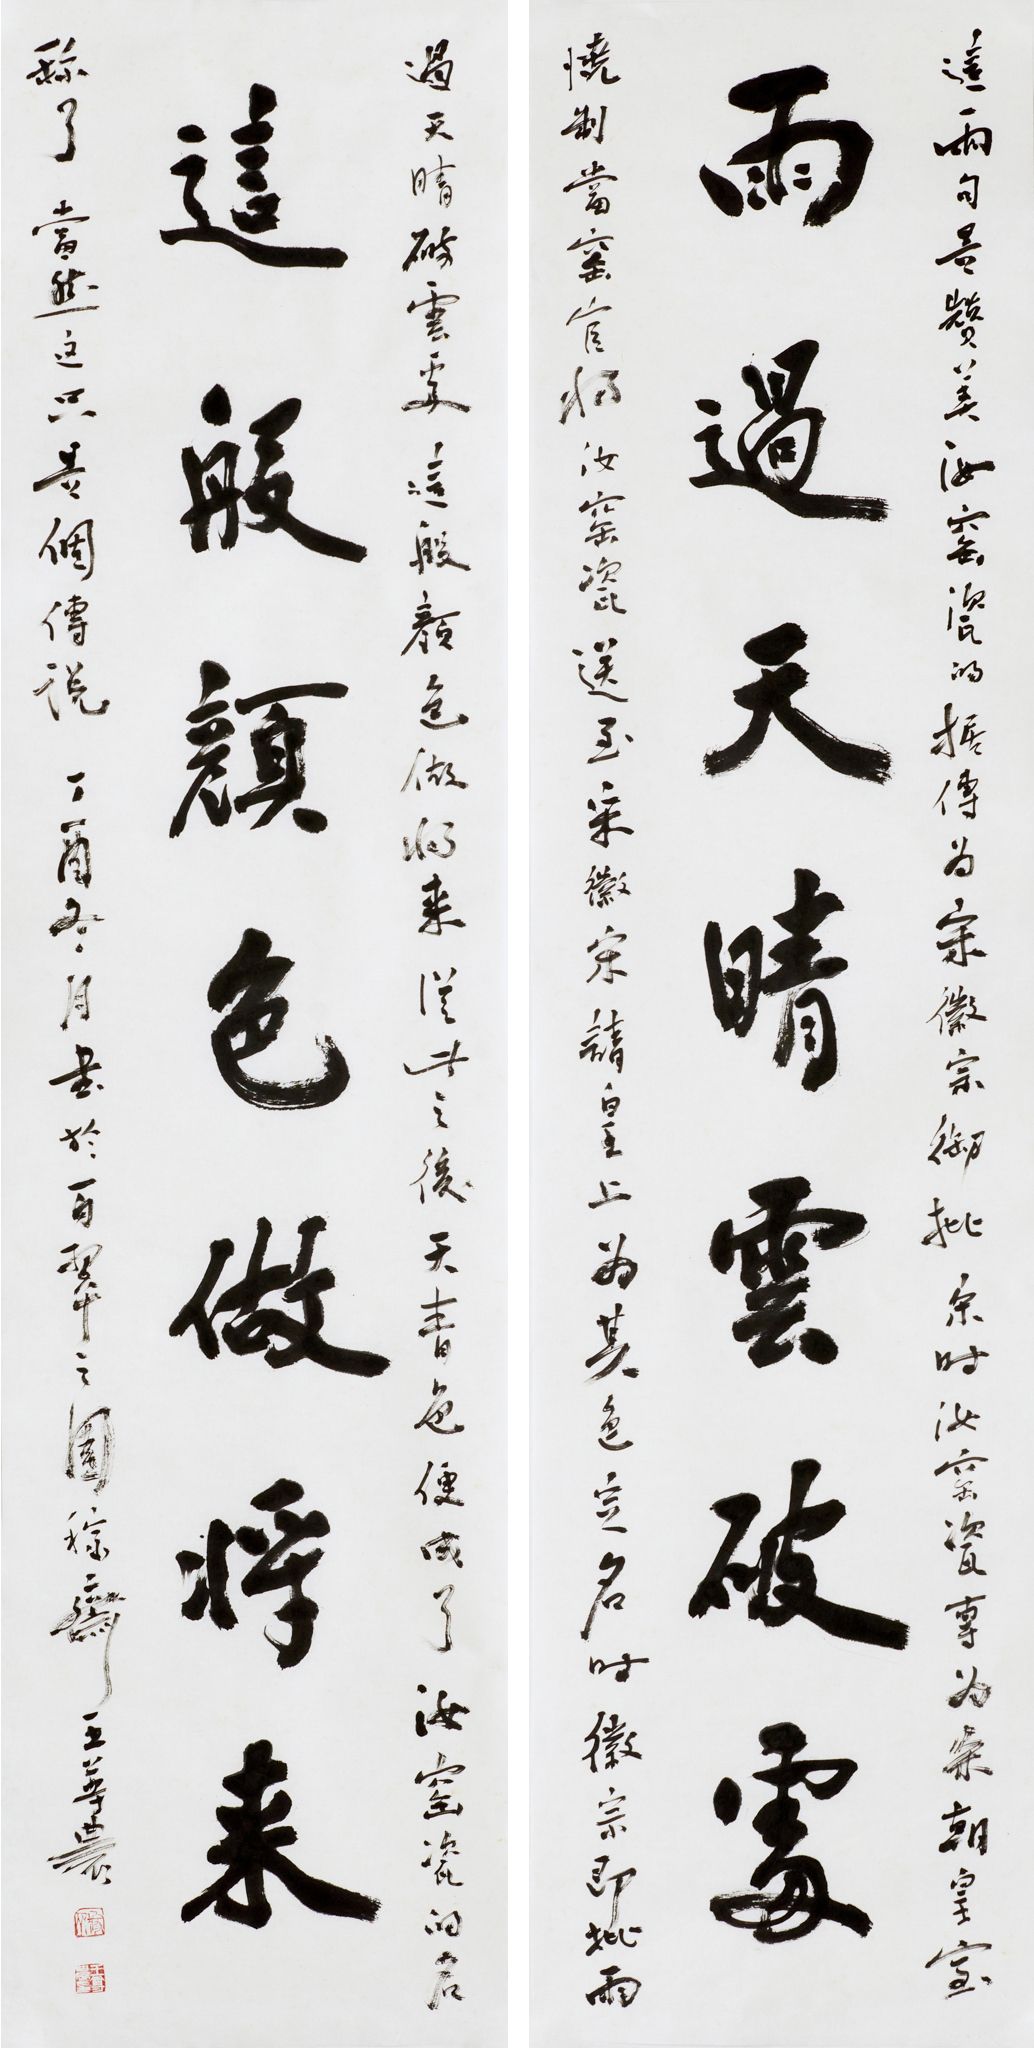 這兩句是贊美汝窑瓷的据傳为宋徽宗御批宋时汝窑瓷專为宋朝皇室
雨過天晴雲破處
燒制當窑官將汝窑瓷送至宋徽宋請皇上为其色定名时徽宗即批雨
過天晴破雲處這般顏色做將来從此之後天青色便成了汝窑瓷的名
這般顏色做將来
称了當然这只是個傳说 丁酉冬月書於百翠之園 齋王華農